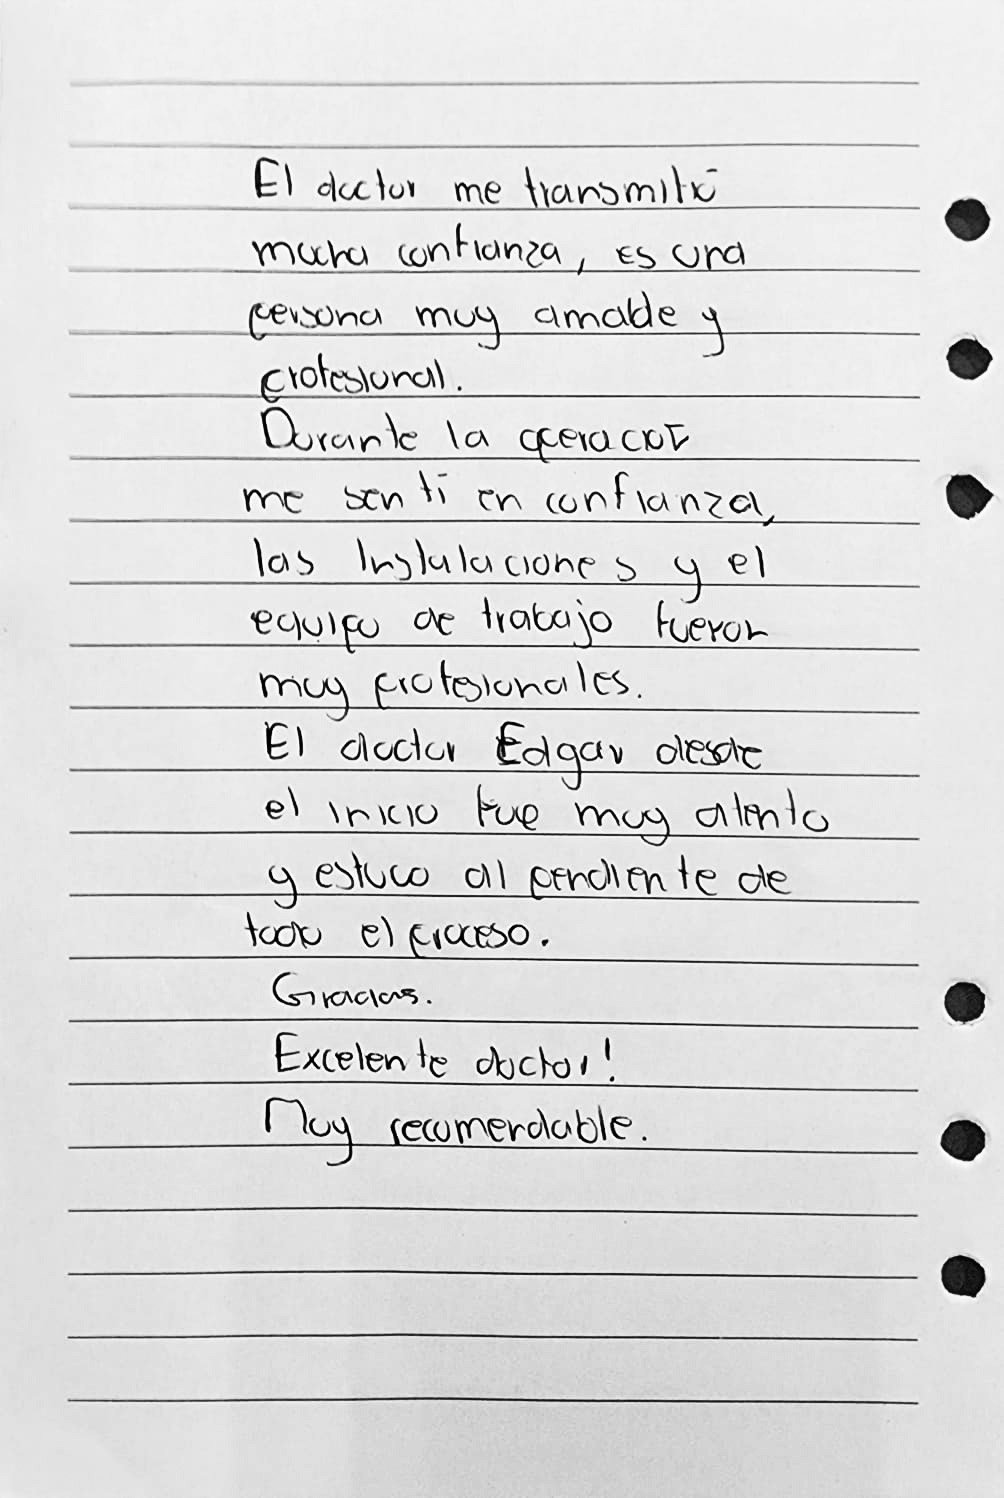 El doctor me transmitió
mucha confianza, es una
persona muy amable y
profesional.
Durante la operación
me sentí en confianza,
las Instalaciones y el
equipo de trabajo fueron
muy profesionales.
El doctor Edgar desde
el inicio fue muy atento
y estuvo al pendiente de
todo el proceso.
Gracias.
Excelente doctor!
Muy recomendable.